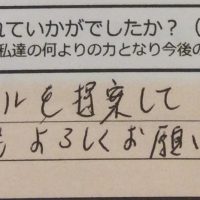 れていかがでしたか？（
私達の何よりの力となり今後の
ルを提案して
よろしくお願い